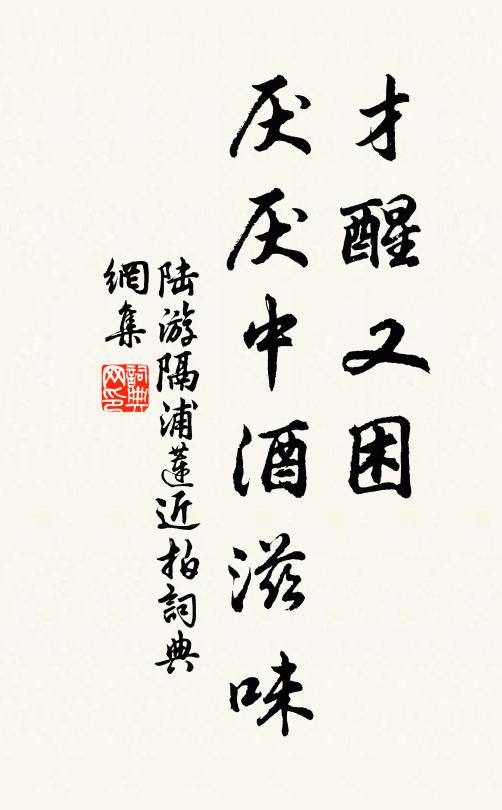 才醒又困
厌厌中酒滋味
陆游隔浦莲近拍詞典
網集
詞典
网印